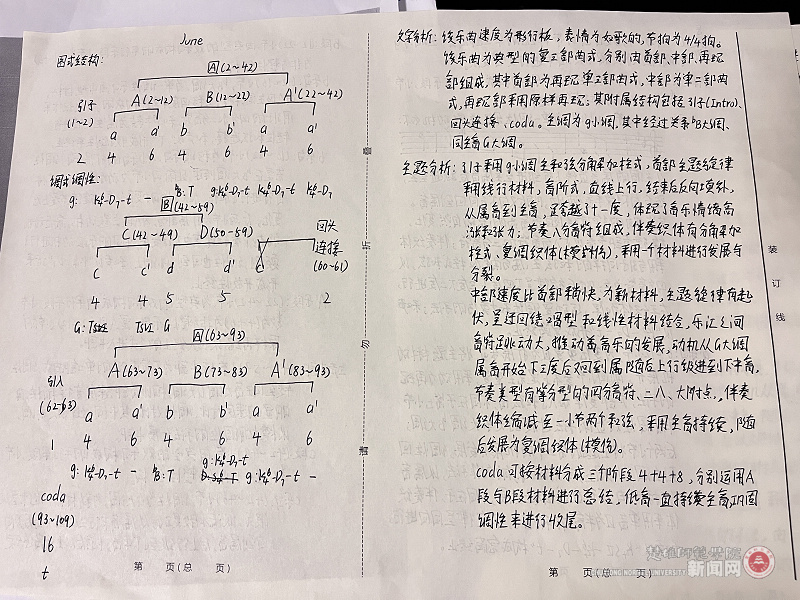 June
图式结构:
A(2~42)
引子
(1~2)
A(2~12)
B(12~22)
A'(22~42)
a a' b b' a a'
2 4 6 4 6 4 6
调式调性:
g: K⁶₄-D₇-t - ♭B:T g:K⁶₄-D₇-t K⁶₄-D₇-t K⁶₄-D₇
B(42~59)
C(42~49) D(50-59)
回头
连接
(60~61)
c c' d d' c
4 4 5 5 2
G: T
A(63~93)
引入
(62-63)
A(63~73) B(73~83) A'(83~93)
a a' b b' a a'
1 4 6 4 6 4 6
g:K⁶₄-D₇-t - ♭B:T g:K⁶₄-D₇-t g:K⁶₄-D₇-t -
coda
(93~109)
16
t
第 页(总 页)
文字分析: 该乐曲速度为行板, 表情为如歌的,节拍为4/4拍。
该乐曲为典型的复三部曲式,分别由首部、中部、再现
部组成,其中首部为再现单三部曲式,中部为单二部曲
式,再现部采用原样再现;其附属结构包括引子(Intro)、
回头连接、coda。主调为g小调,其中经过关系♭B大调、
同主音G大调。
主题分析: 引子采用g小调主和弦分解加柱式,首部主题旋律
采用线行材料,音阶式,直线上行,结束后反向级进,
从属音到主音,跨越了十一度,体现了音乐情绪高
涨和张力;节奏八分音符组成,伴奏织体有分解加
柱式、复调织体(模仿),采用一个材料进行发展与
分裂。
中部速度比首部稍快,为新材料,主题旋律有起
伏,呈迂回绕唱型和线性材料结合,乐汇之间
音符跳动大,推动着音乐的发展,动机从G大调
属音开始下三度后又回到属,随后上行级进到下中音,
节奏类型有紧分型的四分音符、二八、大附点,伴奏
织体缩减至一小节两个和弦,采用主音持续,随
后发展为复调织体(模仿)。
coda可按材料分成三个阶段4+4+8,分别运用A
段与B段材料进行总结,低音一直持续主音巩固
调性来进行收尾。
第 页(总 页)
装
订
线
楚雄师范学院
新闻网